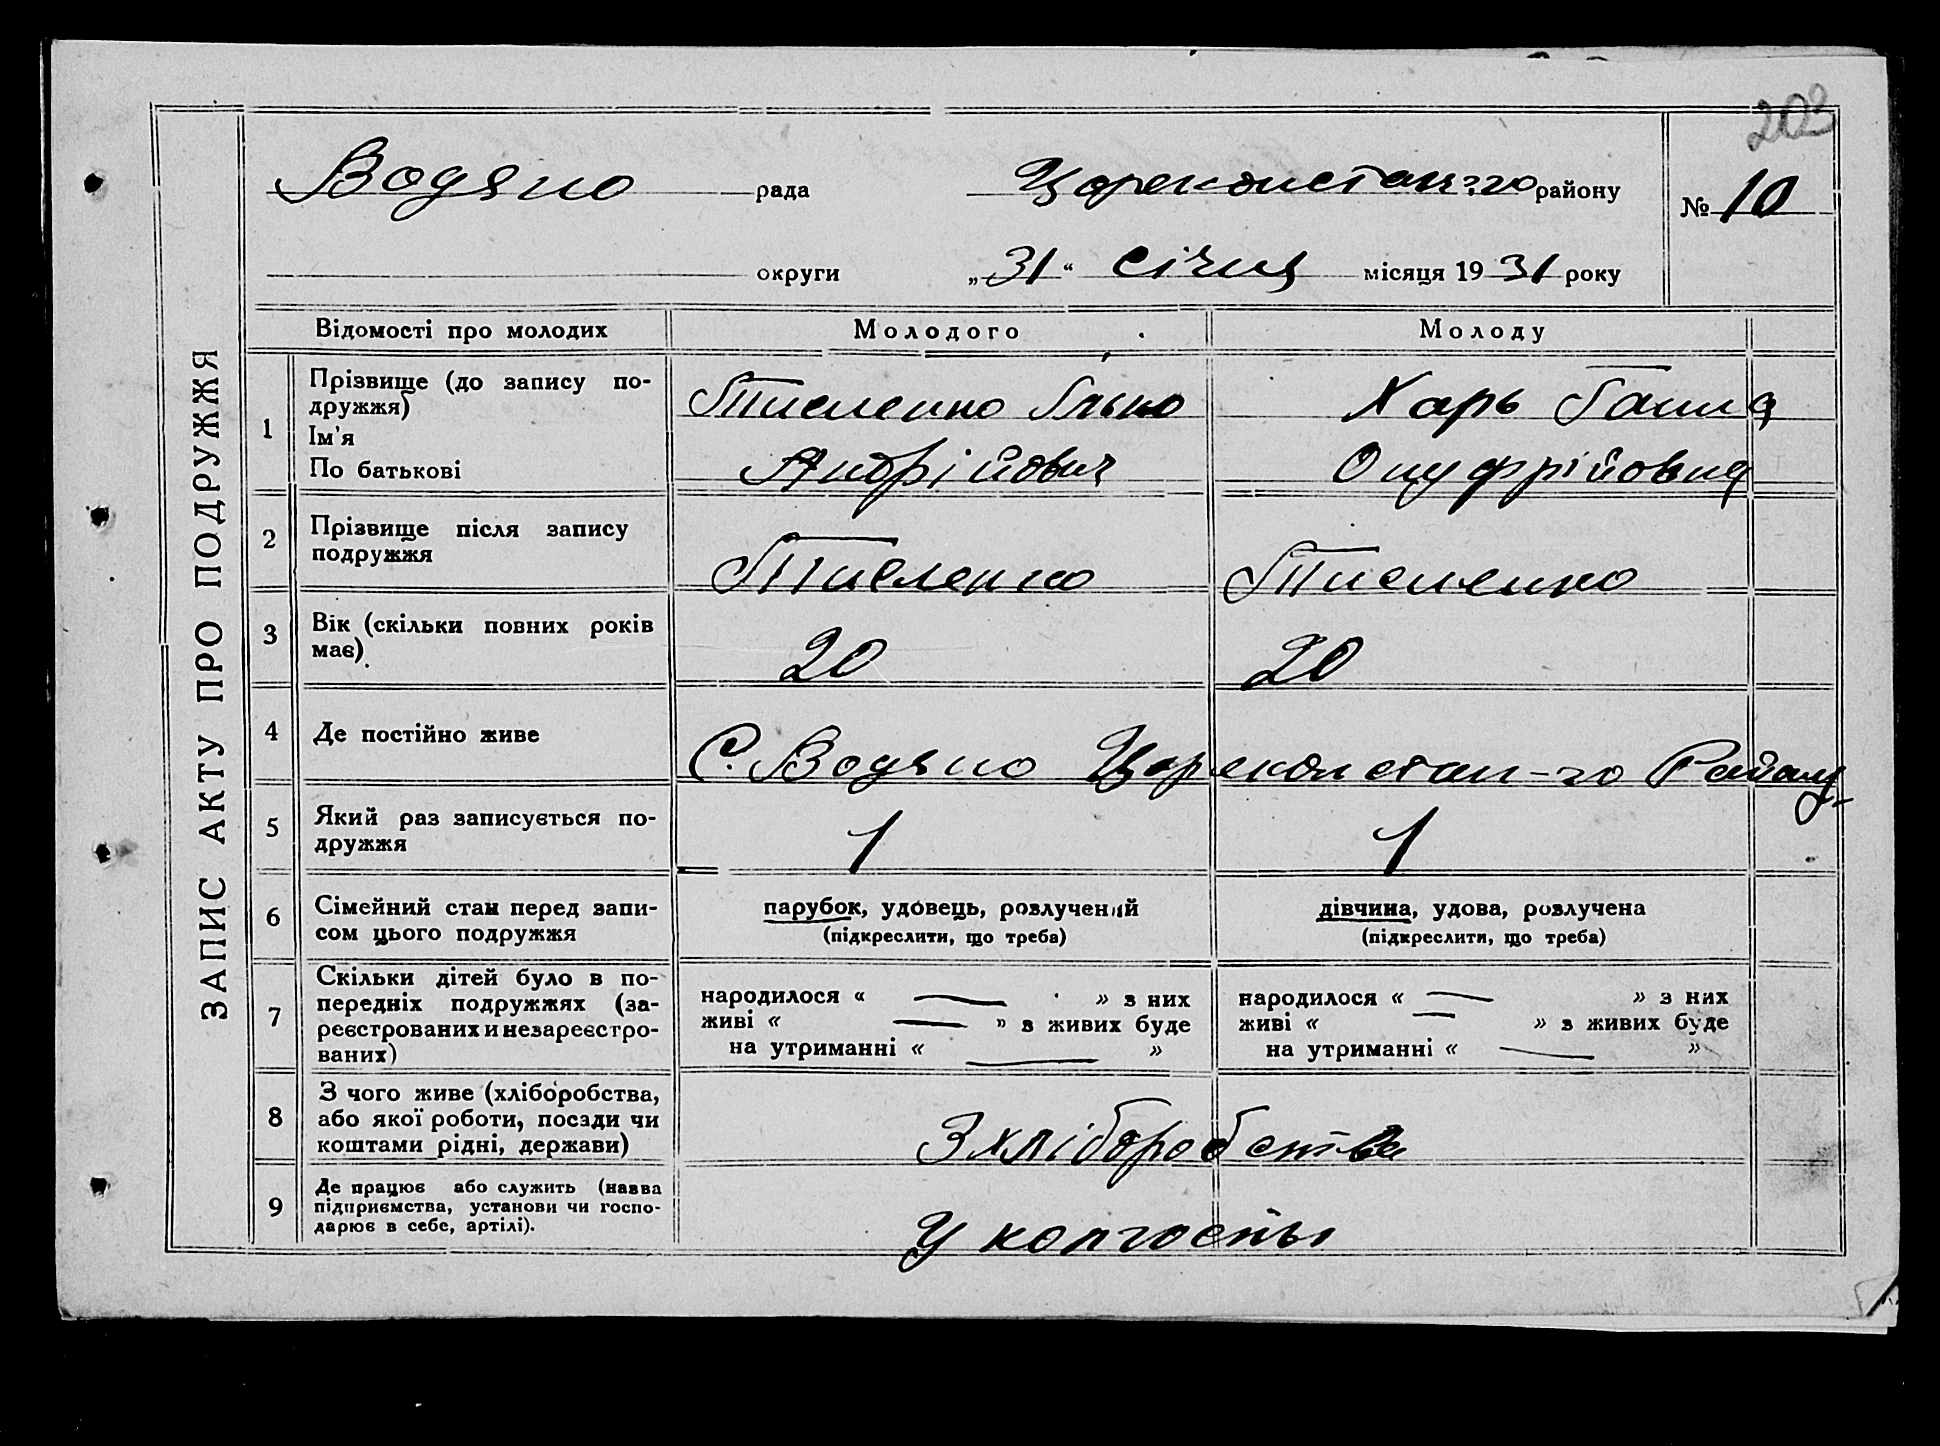 203
Водяно рада Цареконстан-го району № 10
округи „31“ Січня місяця 1931 року
ЗАПИС АКТУ ПРО ПОДРУЖЖЯ
Відомості про молодих Молодого Молоду
1 Прізвище (до запису по-
дружжя)
Ім'я
По батькові
Тисленко Ілько
Андрійович
Харь Ганна
Онуфрійовна
2 Прізвище після запису
подружжя
Тисленко Тисленко
3 Вік (скільки повних років
має)
20 20
4 Де постійно живе С. Водяно Царе констан-го Району
5 Який раз записується по-
дружжя
1 1
6 Сімейний стан перед запи-
сом цього подружжя
парубок, удовець, розлучений
(підкреслити, що треба)
дівчина, удова, розлучена
(підкреслити, що треба)
7 Скільки дітей було в по-
передніх подружжях (за-
реєстрованих и незареєстро-
ваних)
народилося « — » з них
живі « — » з живих буде
на утриманні « — »
народилося « — » з них
живі « — » з живих буде
на утриманні « — »
8 З чого живе (хліборобства,
або якої роботи, посади чи
коштами рідні, держави)
З хліборобства
9 Де працює або служить (назва
підприємства, установи чи госпо-
дарює в себе, артілі).
У колгоспы